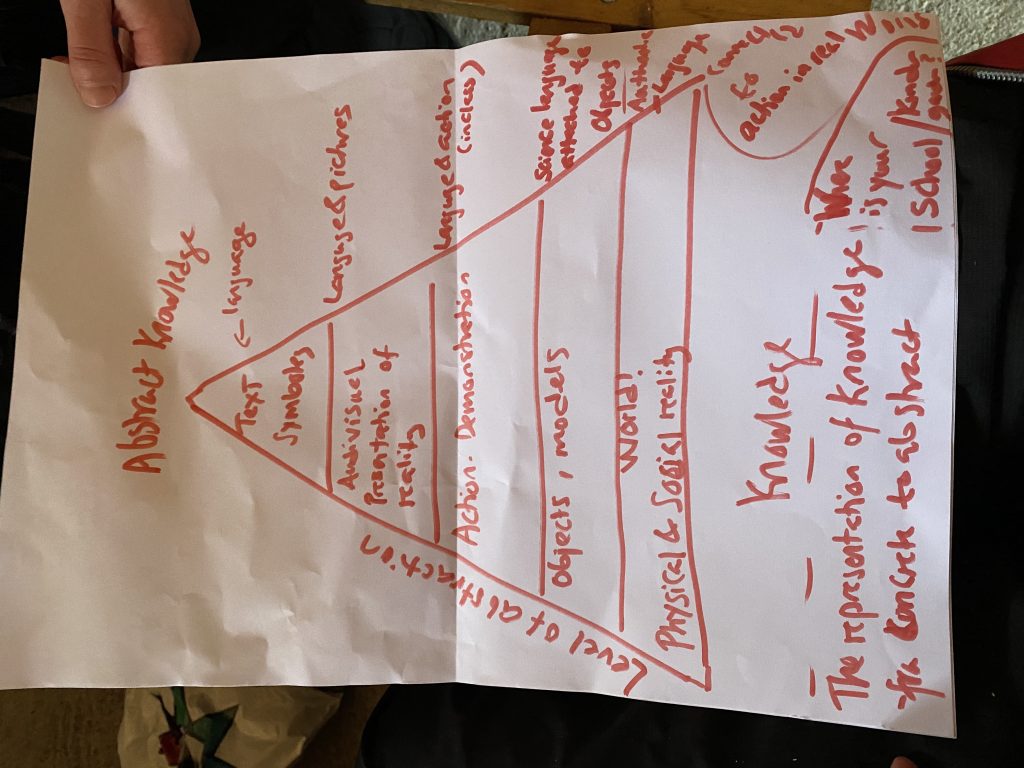 Abstract Knowledge
Text
← language
Symboles
Language & pictures
Audivisuel
Presentation of
reality
Language & action
(in class)
Action. Demonstration
Level of abstraction
Science language
attached to
Objects
Objects, models
World!
Language
Physical & Social reality
Connect
to
action in real
Knowledge
The representation of Knowledge
fra Concrete to abstract
Where
is your
School /